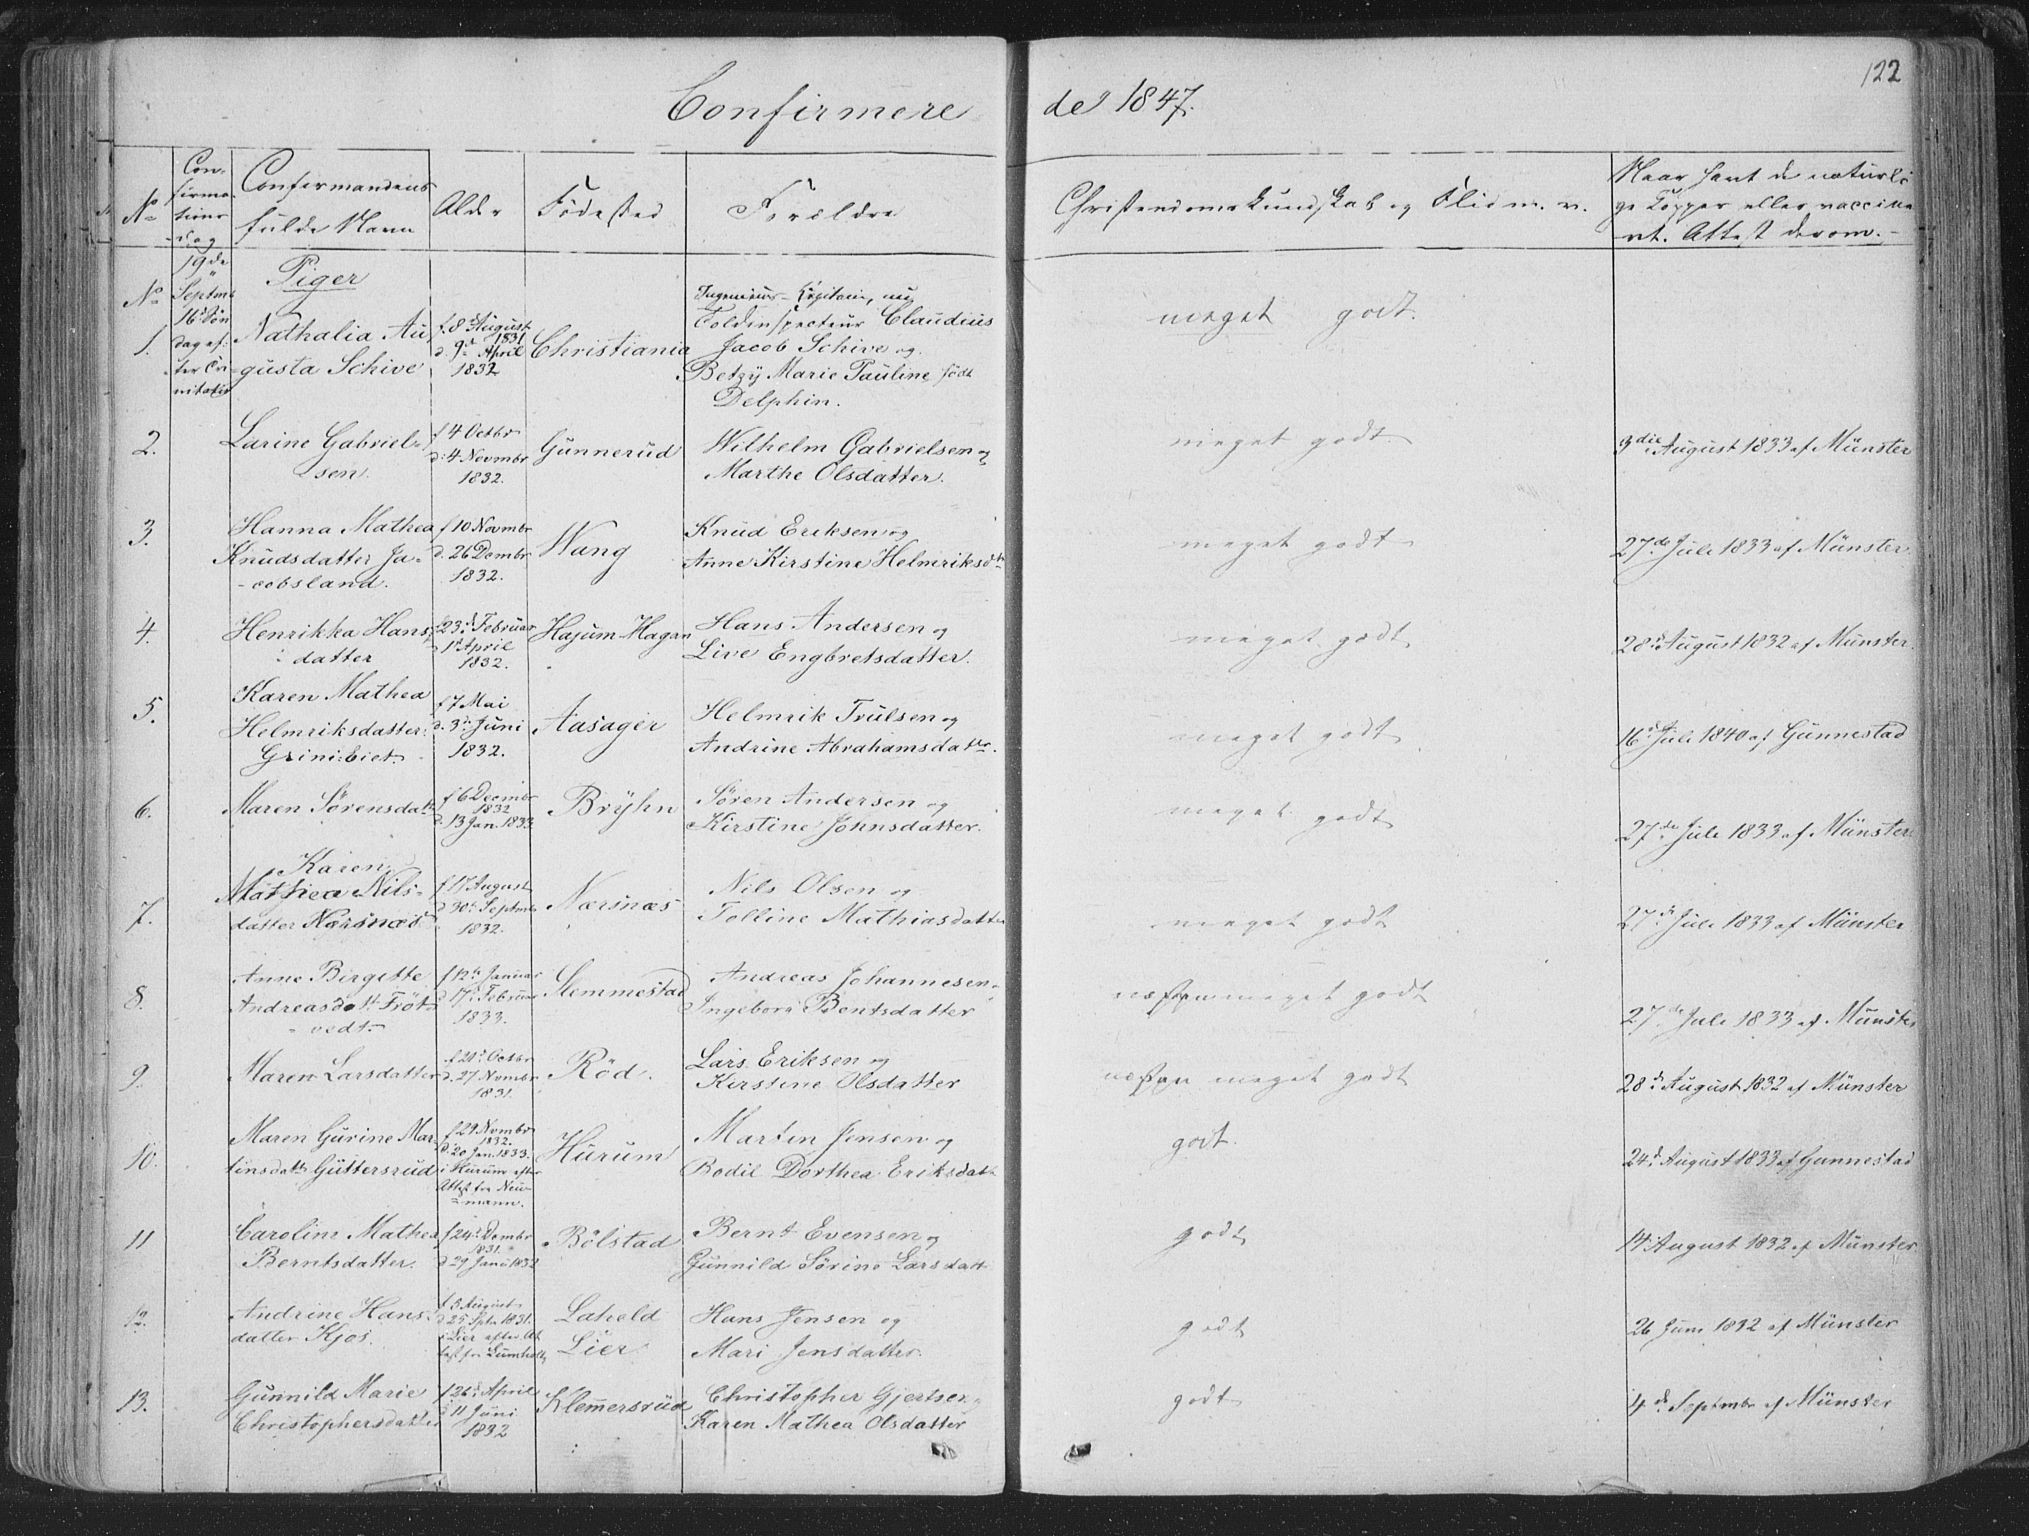 122
Confirmerede 1847.
No
Confirmations dag
Confirmandens fulde Navn
Alder
Födested
Forældre
Christendomskundskab og Flid m. v.
Naar havt de naturlige Kopper eller vaccineret. Attest derom.
No
19de Septmb 16d Söndag efter Trinitatis
Piger
1.
Nathalia Augusta Schive
f. 8d August 1831
d. 9d April 1832
Christiania
Ingenieur-Kapitain, nu
Toldinspecteur Claudius
Jacob Schive og
Betzÿ Marie Pauline födt
Delphin.
meget godt.
2.
Larine Gabrielsen.
f 4 Octbr
d. 4 Novmbr
1832.
Gunnerud
Wilhelm Gabrielsen og
Marthe Olsdatter.
meget godt
3die August 1833 af Münster
3.
Hanna Mathea
Knudsdatter Ja-
cobsland.
f 10 Novmbr
d. 26 Dcmbr
1832.
Wang
Knud Eriksen og
Anne Kirstine Helmriksdtr
meget godt
27de Juli 1833 af Münster
4.
Henrikka Hans-
datter
23d Februar
1st April
1832.
Hajum Hagan
Hans Andersen og
Live Engbretsdatter.
meget godt
28d August 1832 af Münster.
5.
Karen Mathea
Helmriksdatter
Grini:eiet.
f 7 Mai
d. 3d Juni
1832.
Aasager
Helmrik Trulsen og
Andrine Abrahamsdattr.
meget godt
16d Juli 1840 af Gunnestad
6.
Maren Sörensdattr
f 6 Decimbr
1832
d. 13 Jan. 1833.
Brÿhn
Sören Andersen og
Kirstine Johnsdatter.
meget godt
27de Juli 1833 af Münster
7.
Karen
Mathea Nils-
datter Nærsnæs
f 17 August
d 30d Septmb
1832.
Nærsnæs
Nils Olsen og
Tolline Mathiasdatter
meget godt
27de Juli 1833 af Münster
8.
Anne Birgitte
Andreasdatt Fröt-
vedt.
f 12te Januar
d. 17d Februar
1833.
Slemmestad
Andreas Johannesen
Ingebora Bentsdatter
næsten meget godt
27de Juli 1833 af Münster
9.
Maren Larsdatter
f 21d Octbr
d. 27 Novmbr
1831.
Röd.
Lars Eriksen og
Kirstine Olsdatter
næsten meget godt
28d August 1832 af Münster
10.
Maren Gurine Mar-
tinsdattr Guttersrud
f 29 Novmbr
1832.
d. 20 Jan. 1833.
i Hurum efter
Attest fra Neu-
mann.
Hurum
Martin Jensen og
Bodil Dorthea Eriksdatt
godt.
24d August 1833 af Gunnestad
11
Caroline Mathea
Berntsdatter.
f 24d Dcmbr
1831.
d 29 Janu 1832
Bölstad
Bernt Evensen og
Gunnild Sörine Larsdatt
godt
14 August 1832 af Münster
12.
Andrine Hans-
datter Kjos.
f 5 August
d 25 Sptr 1831.
i Lier efter At-
test fra Lumholtz
Laheld
Lier
Hans Jensen og
Mari Jensdatter.
godt
26 Juni 1832 af Münster
13.
Gunnild Marie
Christophersdatter
f 26d April
d 11 Juni
1832
Klemmersrud
Christopher Gjertsen
Karen Mathea Olsdatter
godt
4de Septmbr af Münster